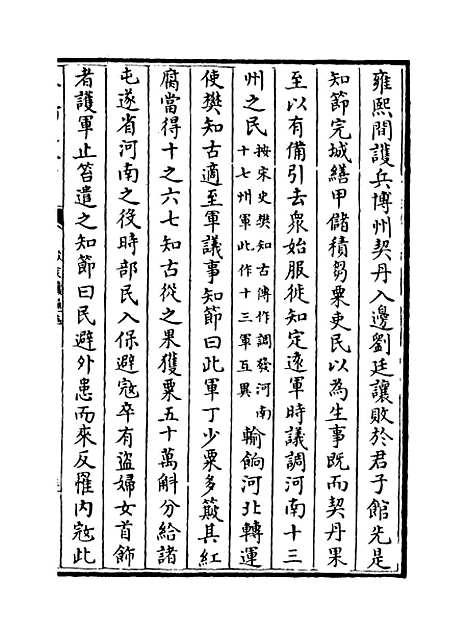 雍熙間護兵博州契丹入邊劉廷讓敗於君子館先是
知節完城繕甲儲積芻粟吏民以為生事既而契丹果
至以有備引去衆始服徙知定逺軍時議調河南十三
州之民按宋史樊知古傳作調發河南十七州軍此作十三軍互異輸餉河北轉運
使樊知古適至軍議事知節曰此軍丁少粟多簸其紅
腐當得十之六七知古從之果獲粟五十萬斛分給諸
屯遂省河南之役時部民入保避冦卒有盜婦女首飾
者護軍止笞遣之知節曰民避外患而來反罹内冦此